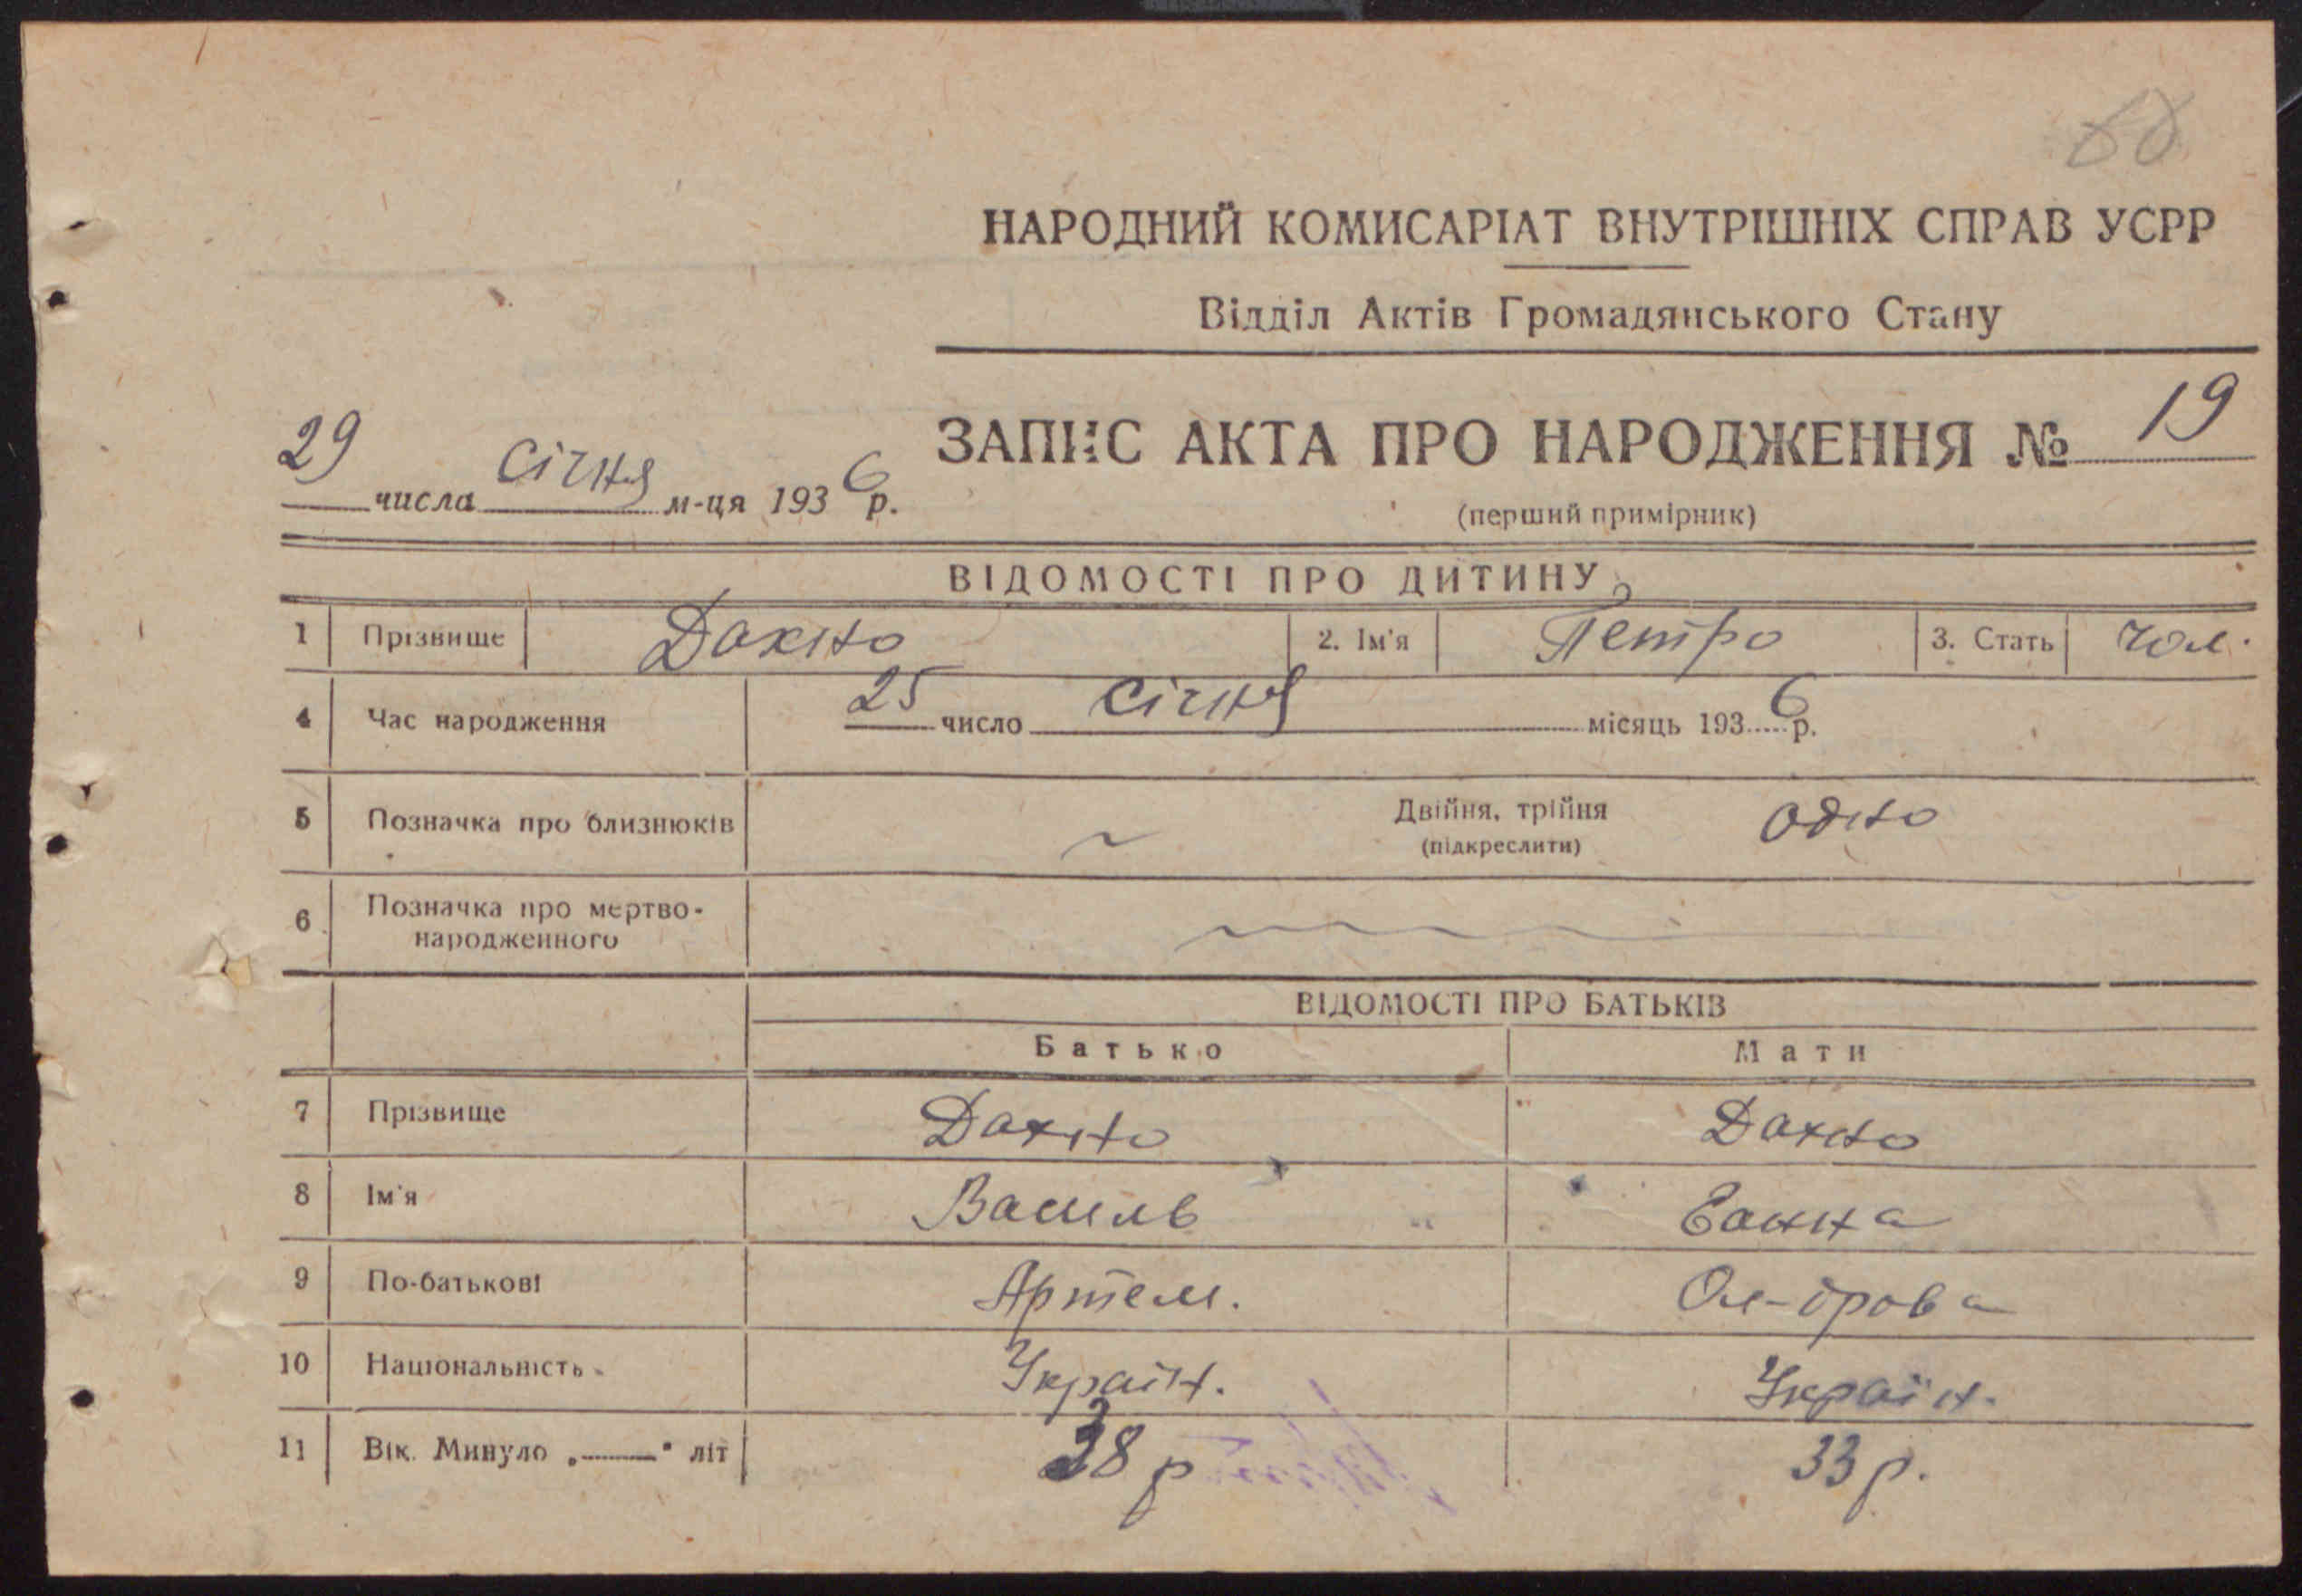 НАРОДНИЙ КОМИСАРІАТ ВНУТРІШНІХ СПРАВ УСРР
Відділ Актів Громадянського Стану
ЗАПИС АКТА ПРО НАРОДЖЕННЯ № 19
29 числа січня м-ця 1936 р.
(перший примірник)
ВІДОМОСТІ ПРО ДИТИНУ
1 Прізвище Дахно 2. Ім'я Петро 3. Стать чол.
4 Час народження 25 число січня місяць 1936 р.
5 Позначка про близнюків Двійня, трійня одно
(підкреслити)
6 Позначка про мертво-
народженного
ВІДОМОСТІ ПРО БАТЬКІВ
Батько Мати
7 Прізвище Дахно Дахно
8 Ім'я Василь Ганна
9 По-батькові Артем.
10 Національність Україн. Україн.
11 Вік. Минуло „——" літ 38 р 33 р.